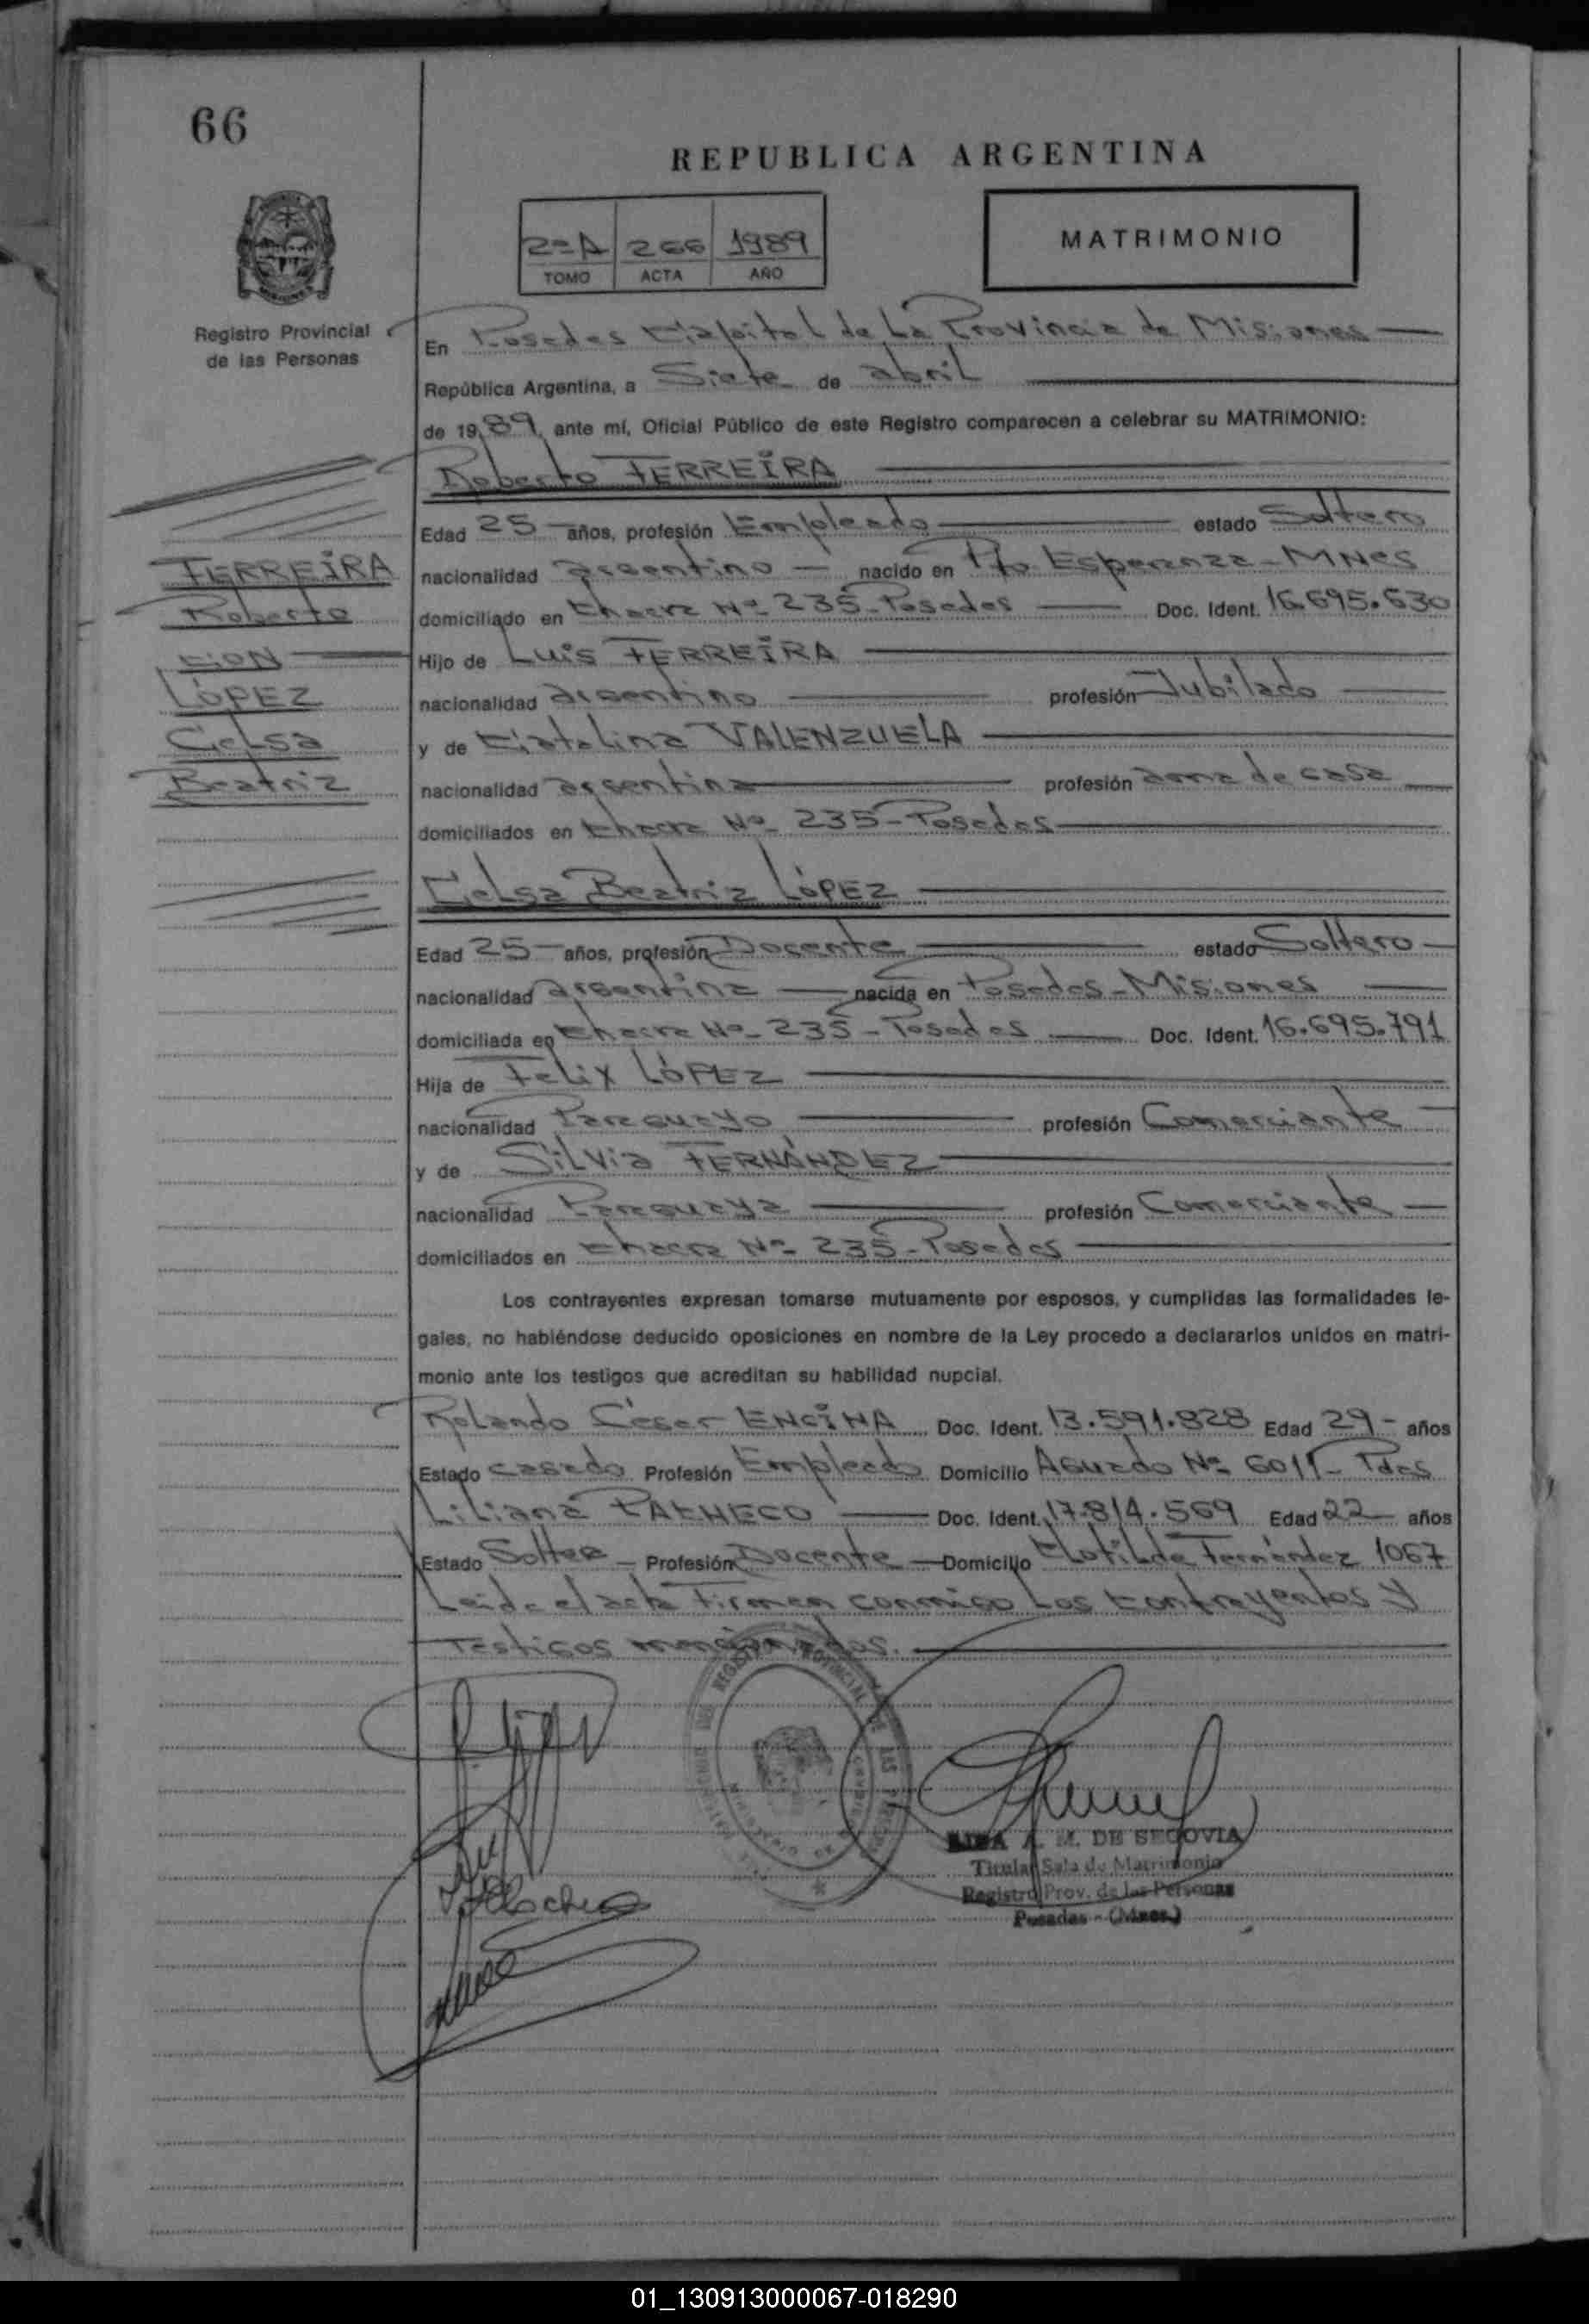 66
REPUBLICA ARGENTINA
2ºA 266 1989
TOMO ACTA AÑO
MATRIMONIO
Registro Provincial
de las Personas
En Posadas Capital de La Provincia de Misiones
República Argentina, a Siete de abril
de 1989, ante mí, Oficial Público de este Registro comparecen a celebrar su MATRIMONIO:
Roberto FERREIRA
Edad 25 años, profesión Empleado estado Soltero
nacionalidad argentino nacido en Pto Esperanza - MNES
domiciliado en Chacra Nº 235 - Posadas Doc. Ident. 16.695.630
Hijo de Luis FERREIRA
nacionalidad argentino profesión Jubilado
y de Catalina VALENZUELA
nacionalidad argentina profesión ama de casa
domiciliados en Chacra Nº 235 - Posadas
FERREIRA
Roberto
CON
LÓPEZ
Celsa
Beatriz
Celsa Beatriz LÓPEZ
Edad 25 años, profesión Docente estado Soltero
nacionalidad argentina nacida en Posadas - Misiones
domiciliada en Chacra Nº 235 - Posadas Doc. Ident. 16.695.791
Hija de Felix LÓPEZ
nacionalidad Paraguayo profesión Comerciante
y de Silvia FERNÁNDEZ
nacionalidad Paraguaya profesión Comerciante
domiciliados en Chacra Nº 235 - Posadas
Los contrayentes expresan tomarse mutuamente por esposos, y cumplidas las formalidades le-
gales, no habiéndose deducido oposiciones en nombre de la Ley procedo a declararlos unidos en matri-
monio ante los testigos que acreditan su habilidad nupcial.
Rolando César ENCINA Doc. Ident. 13.591.828 Edad 29 - años
Estado casado Profesión Empleado Domicilio Aguado Nº 6011 - Pdas
Liliana PACHECO Doc. Ident. 17.814.569 Edad 22 años
Estado Soltera Profesión Docente Domicilio Clotilde Fernández 1067
Leida el acta Firman conmigo Los Contrayentes y
Testigos mencionados.
A. M. DE SEGOVIA
Titular Sala de Matrimonio
Registro Prov. de las Personas
Posadas - (Mnes.)
01_130913000067-018290